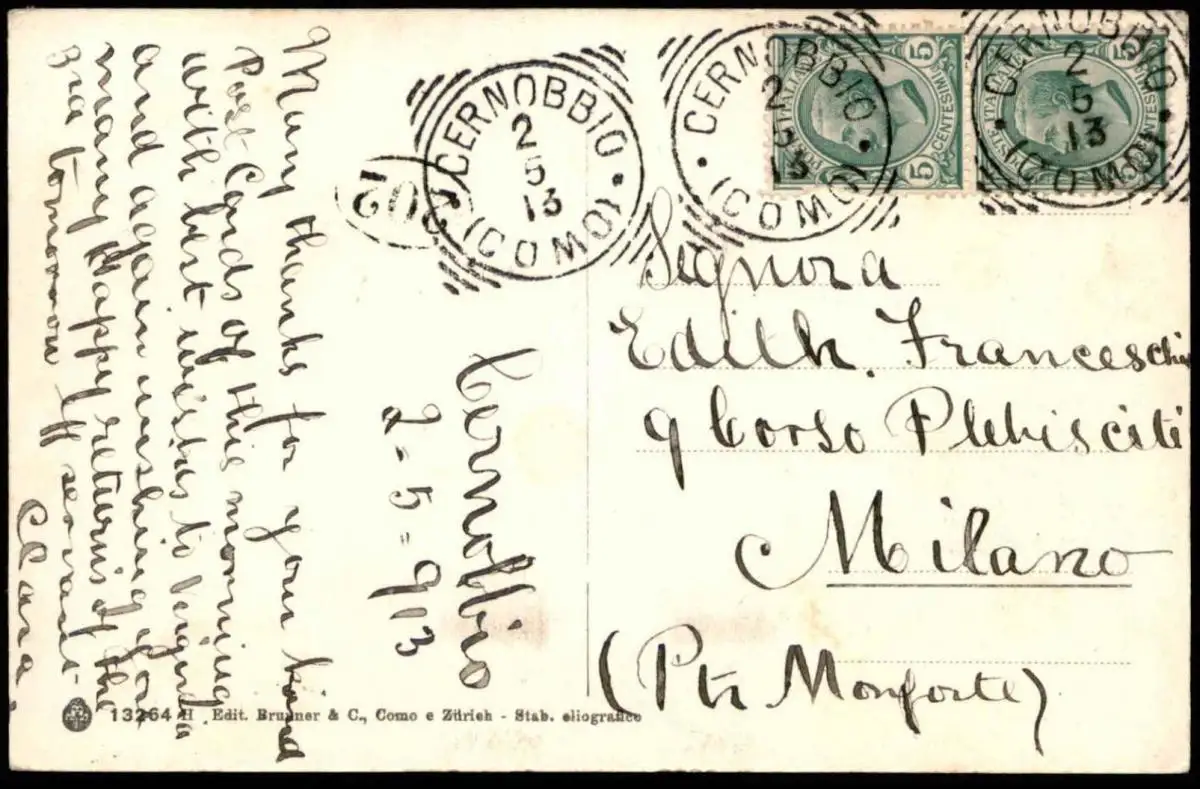 Cernobbio
2-5-913
Many thanks for your kind
Post Cards of this morning
with best wishes to
and again wishing you
many Happy returns of the
tomorrow aff servant
Clara
CERNOBBIO
2
5
13
(COMO)
CERNOBBIO
2
5
13
(COMO)
CERNOBBIO
2
5
13
(COMO)
POSTE ITALIANE
5 CENTESIMI 5
POSTE ITALIANE
5 CENTESIMI 5
Signora
Edith Franceschi
9 Corso Plebisciti
Milano
(Pta Monforte)
13264 H Edit. Brunner & C., Como e Zürich - Stab. eliografico